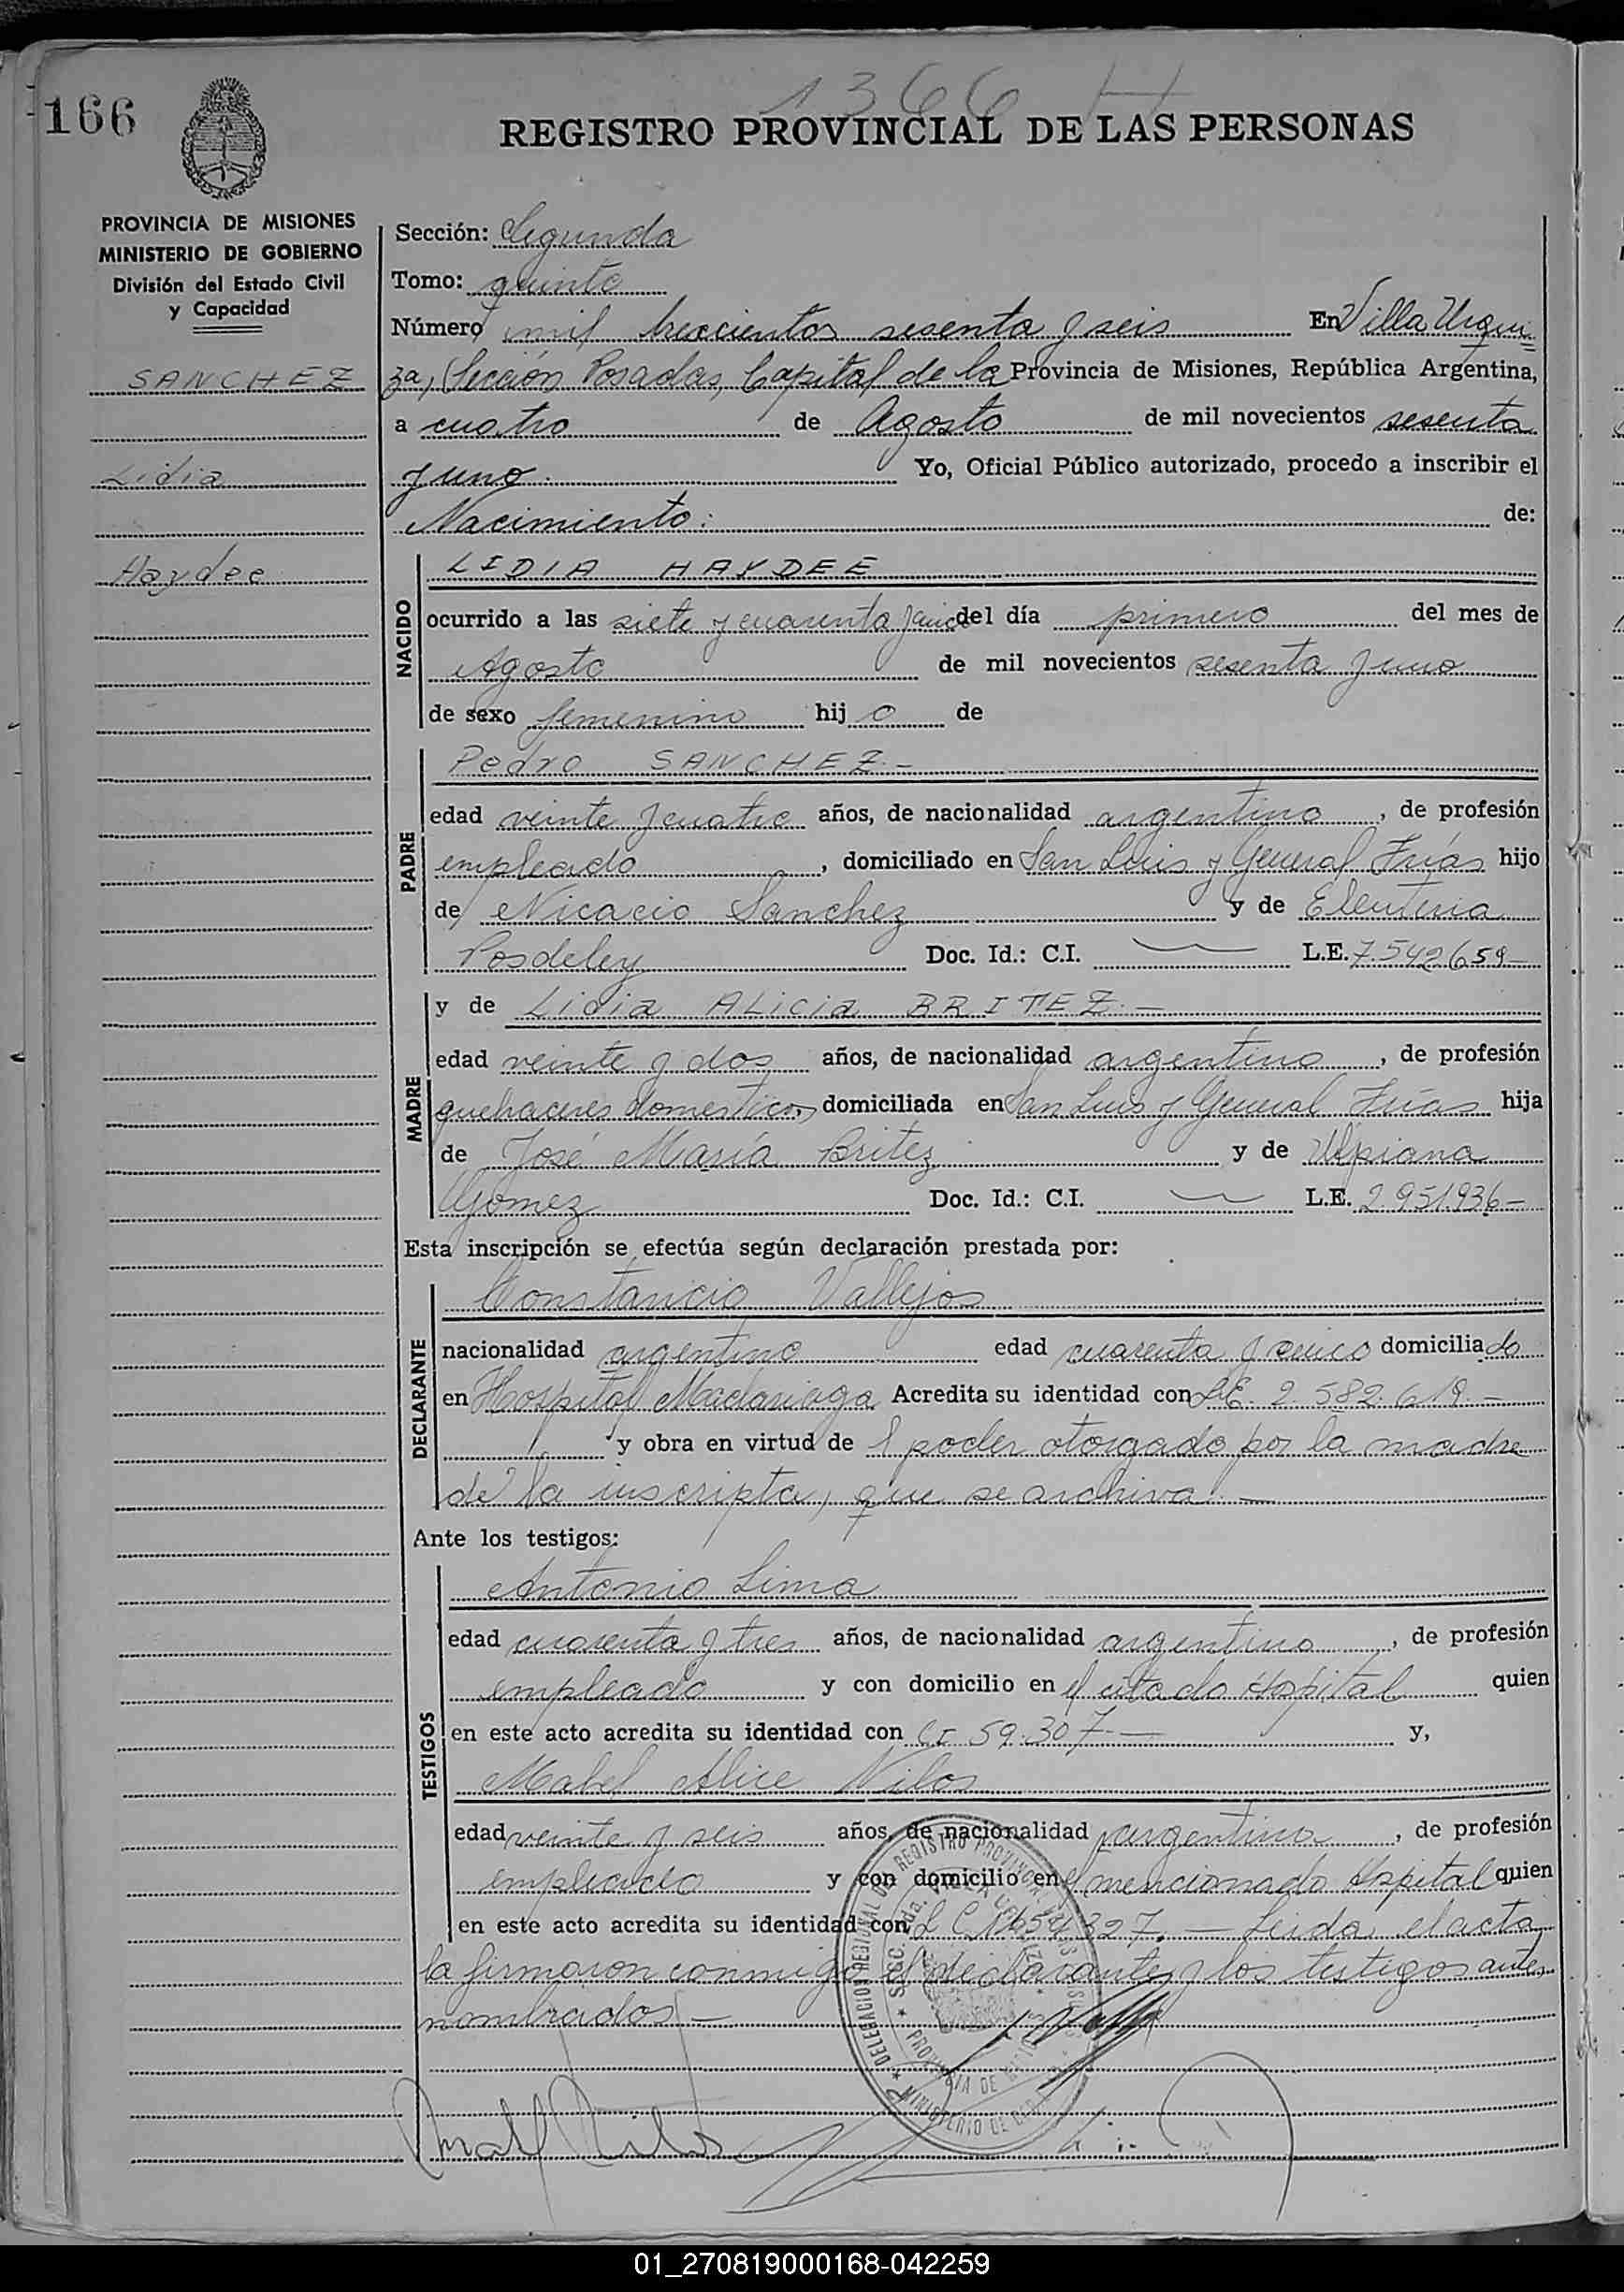 1366 H
166
REGISTRO PROVINCIAL DE LAS PERSONAS
PROVINCIA DE MISIONES
MINISTERIO DE GOBIERNO
División del Estado Civil
y Capacidad
SANCHEZ
Lidia
Haydee
Sección: Segunda
Tomo: quinto
Número mil trescientos sesenta y seis En Villa Urqui
za, Sección Posadas, Capital de la Provincia de Misiones, República Argentina,
a cuatro de Agosto de mil novecientos sesenta
y uno. Yo, Oficial Público autorizado, procedo a inscribir el
Nacimiento: de:
NACIDO
LIDIA HAYDEE
ocurrido a las siete y cuarenta y cinco del día primero del mes de
Agosto de mil novecientos sesenta y uno
de sexo femenino hij o de
PADRE
Pedro SANCHEZ.-
edad veinte y cuatro años, de nacionalidad argentino, de profesión
empleado, domiciliado en San Luis y General Frías hijo
de Nicacio Sanchez y de Eleuteria
Posdeley Doc. Id.: C.I. L.E. 7.542.659-
MADRE
y de Lidia ALicia BRITEZ.-
edad veinte y dos años, de nacionalidad argentino, de profesión
quehaceres domesticos, domiciliada en San Luis y General Frías hija
de José María Britez y de Ulpiana
Gomez Doc. Id.: C.I. L.E. 2.951.936-
Esta inscripción se efectúa según declaración prestada por:
DECLARANTE
Constancio Vallejos
nacionalidad argentino edad cuarenta y cinco domiciliado
en Hospital Madariaga Acredita su identidad con L.E. 2.582.619.-
y obra en virtud de l poder otorgado por la madre
de la inscripta, que se archiva.-
Ante los testigos:
TESTIGOS
Antonio Lima
edad cuarenta y tres años, de nacionalidad argentino, de profesión
empleado y con domicilio en el citado Hospital quien
en este acto acredita su identidad con CI 59.307.- y,
Mabel Alice Nilos
edad veinte y seis años, de nacionalidad argentina, de profesión
empleado y con domicilio en el mencionado Hospital quien
en este acto acredita su identidad con L C 1654327.- Leida el acta
la firmaron conmigo el declarante y los testigos ante,
nombrados.-
DELEGACION REGIONAL DEL REGISTRO PROVINCIAL DE LAS PERSONAS
SECC. 2da. VILLA URQUIZA
PROVINCIA DE MISIONES
MINISTERIO DE GOBIERNO
01_270819000168-042259